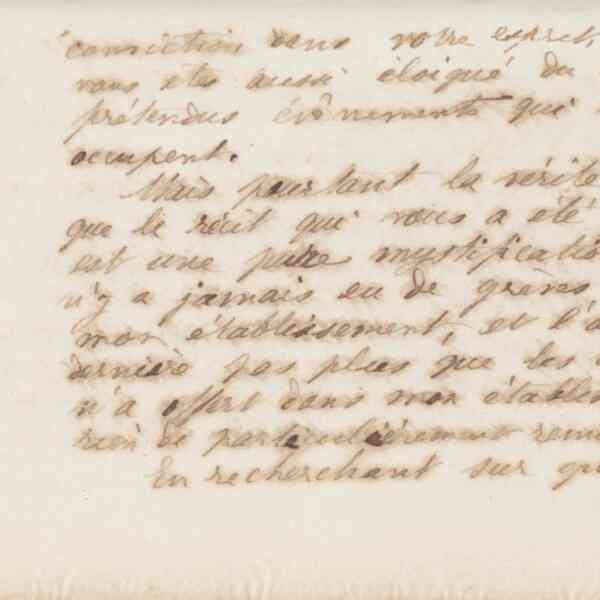 conviction dans votre esprit,
vous etes aussi éloigné du
prétendus évènements qui
occupent.
Mais pourtant la vérité
que le récit qui vous a été
est une pure mystificatio
n'y a jamais eu de grèves
mon établissement, et l'a
dernière pas plus que les
n'a offert dans mon établis
rien de particulièrement rem
En recherchant sur qu